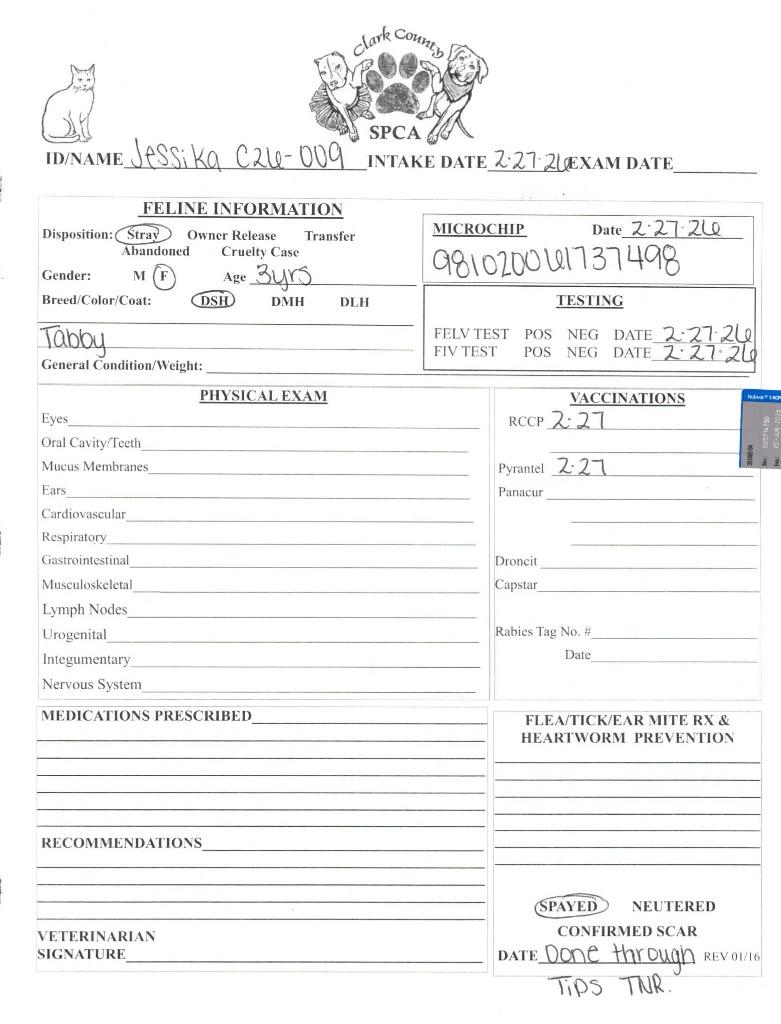 Clark County
SPCA
ID/NAME Jessika C26-009 INTAKE DATE 2-27-26 EXAM DATE
FELINE INFORMATION
Disposition: Stray Owner Release Transfer
Abandoned Cruelty Case
Gender: M F Age 3yrs
Breed/Color/Coat: DSH DMH DLH
Tabby
General Condition/Weight:
MICROCHIP Date 2-27-26
981020061737498
TESTING
FELV TEST POS NEG DATE 2-27-26
FIV TEST POS NEG DATE 2-27-26
PHYSICAL EXAM
Eyes
Oral Cavity/Teeth
Mucus Membranes
Ears
Cardiovascular
Respiratory
Gastrointestinal
Musculoskeletal
Lymph Nodes
Urogenital
Integumentary
Nervous System
VACCINATIONS
RCCP 2-27
Pyrantel 2-27
Panacur
Droncit
Capstar
Rabies Tag No. #
Date
MEDICATIONS PRESCRIBED
RECOMMENDATIONS
VETERINARIAN
SIGNATURE
FLEA/TICK/EAR MITE RX &
HEARTWORM PREVENTION
SPAYED NEUTERED
CONFIRMED SCAR
DATE Done through REV 01/16
TiPS TNR.